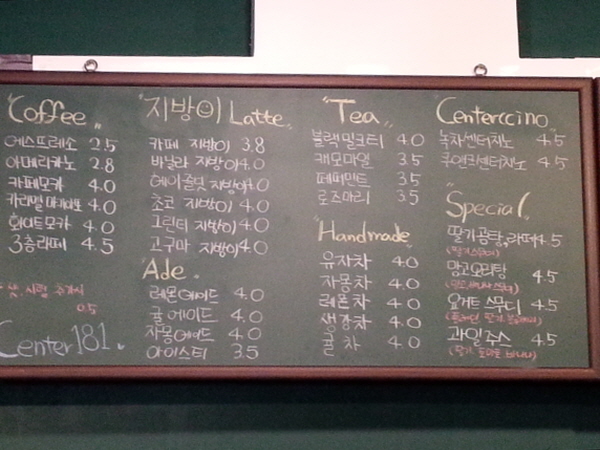 "Coffee"
에스프레소 2.5
아메리카노 2.8
카페모카 4.0
카라멜마끼아또 4.0
화이트모카 4.0
3층라떼 4.5
샷, 시럽 추가시
0.5
Center181
"지방이 Latte"
카페 지방이 3.8
바닐라 지방이 4.0
헤이즐넛 지방이 4.0
초코 지방이 4.0
그린티 지방이 4.0
고구마 지방이 4.0
"Ade"
레몬에이드 4.0
귤에이드 4.0
자몽에이드 4.0
아이스티 3.5
"Tea"
블랙밀크티 4.0
캐모마일 3.5
페퍼민트 3.5
로즈마리 3.5
"Handmade"
유자차 4.0
자몽차 4.0
레몬차 4.0
생강차 4.0
귤차 4.0
"Centerccino"
녹차센터치노 4.5
쿠앤크센터치노 4.5
"Special"
딸기곰탕,라떼 4.5
(딸기스무디)
망고오리탕 4.5
요거트스무디 4.5
과일주스 4.5
(딸기, 토마토, 바나나)